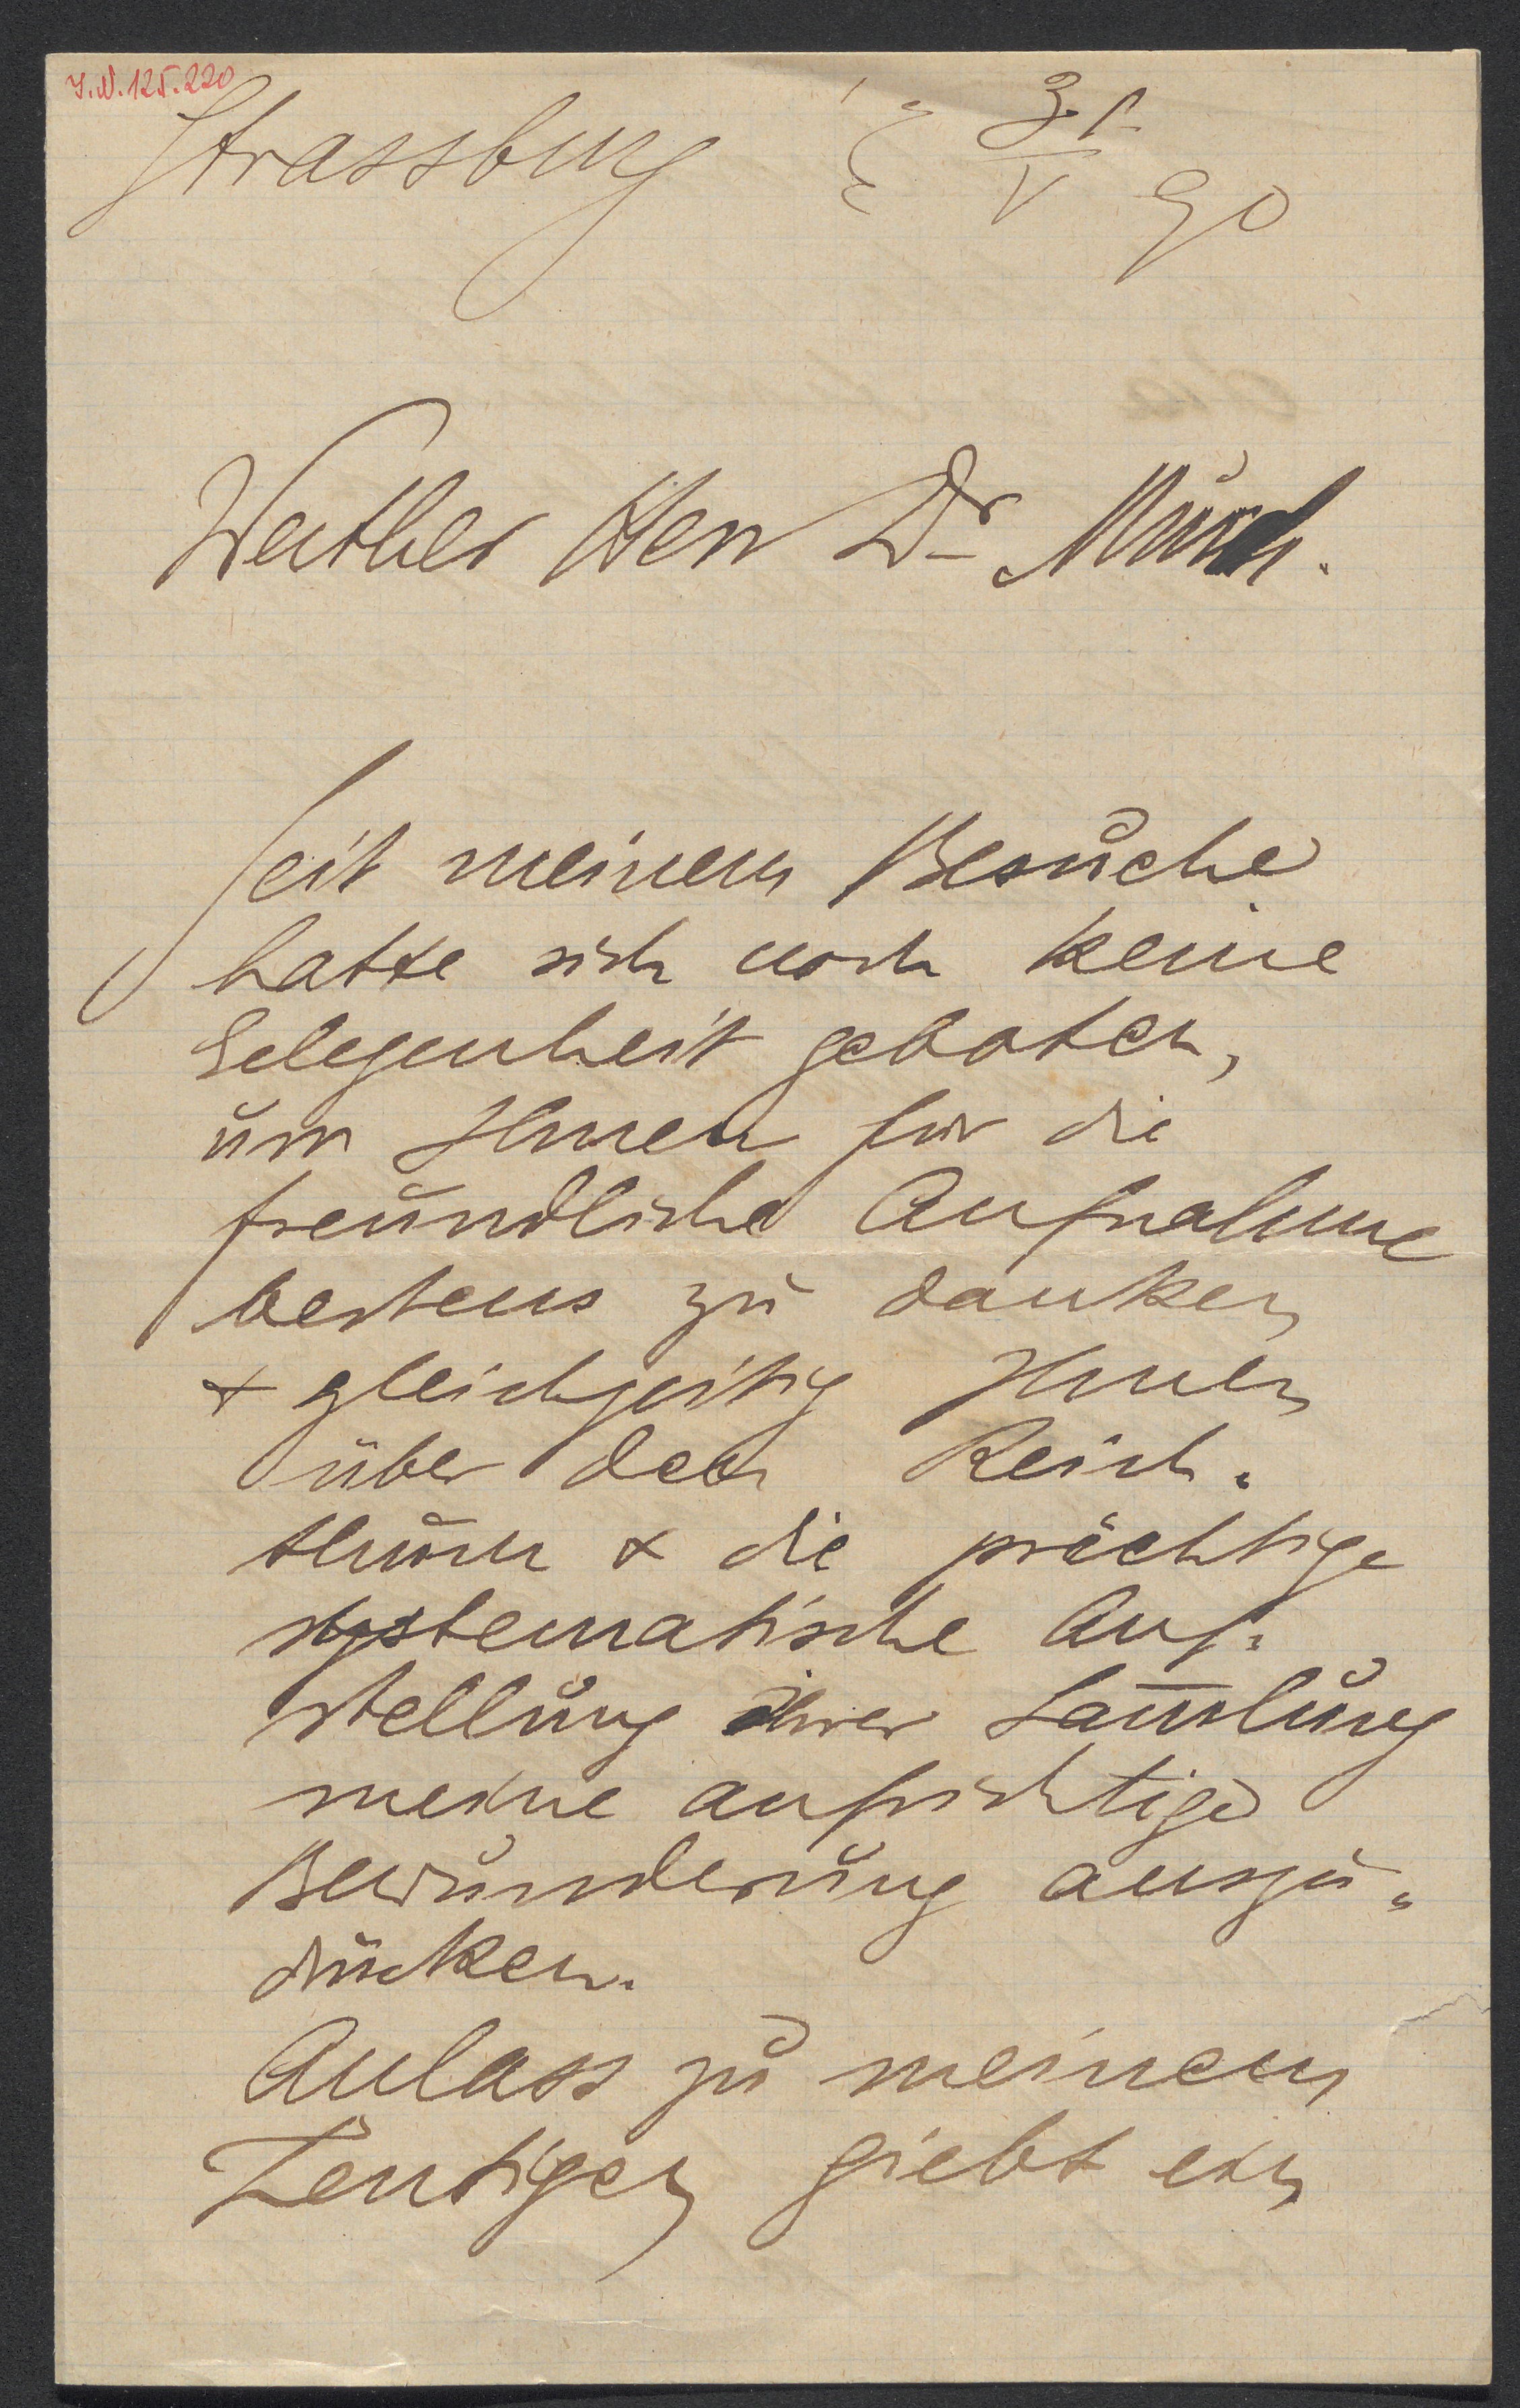 I.N. 125.220
Strassburg 31 V 90
Werther Herr Dr Much.
Seit meinem Besuche
hatte sich noch keine
Gelegenheit geboten,
um Ihnen für die
freundliche Aufnahme
bestens zu danken
& gleichzeitig Ihnen
über den Reich-
thum & die prächtige
systematische Auf-
stellung ihrer Sam̅lung
meine aufrichtige
Bewunderung auszu-
drücken.
Anlass zu meinem
Heutigen giebt ein